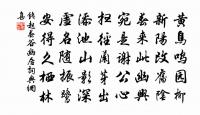 黄鳥鳴園柳
新陽改舊陰
春來此幽興
宛是謝公心
掃徑蘭芽出
添池山影深
虛名隨振鷺
安得久栖林
錢起春谷幽居詞典網
集